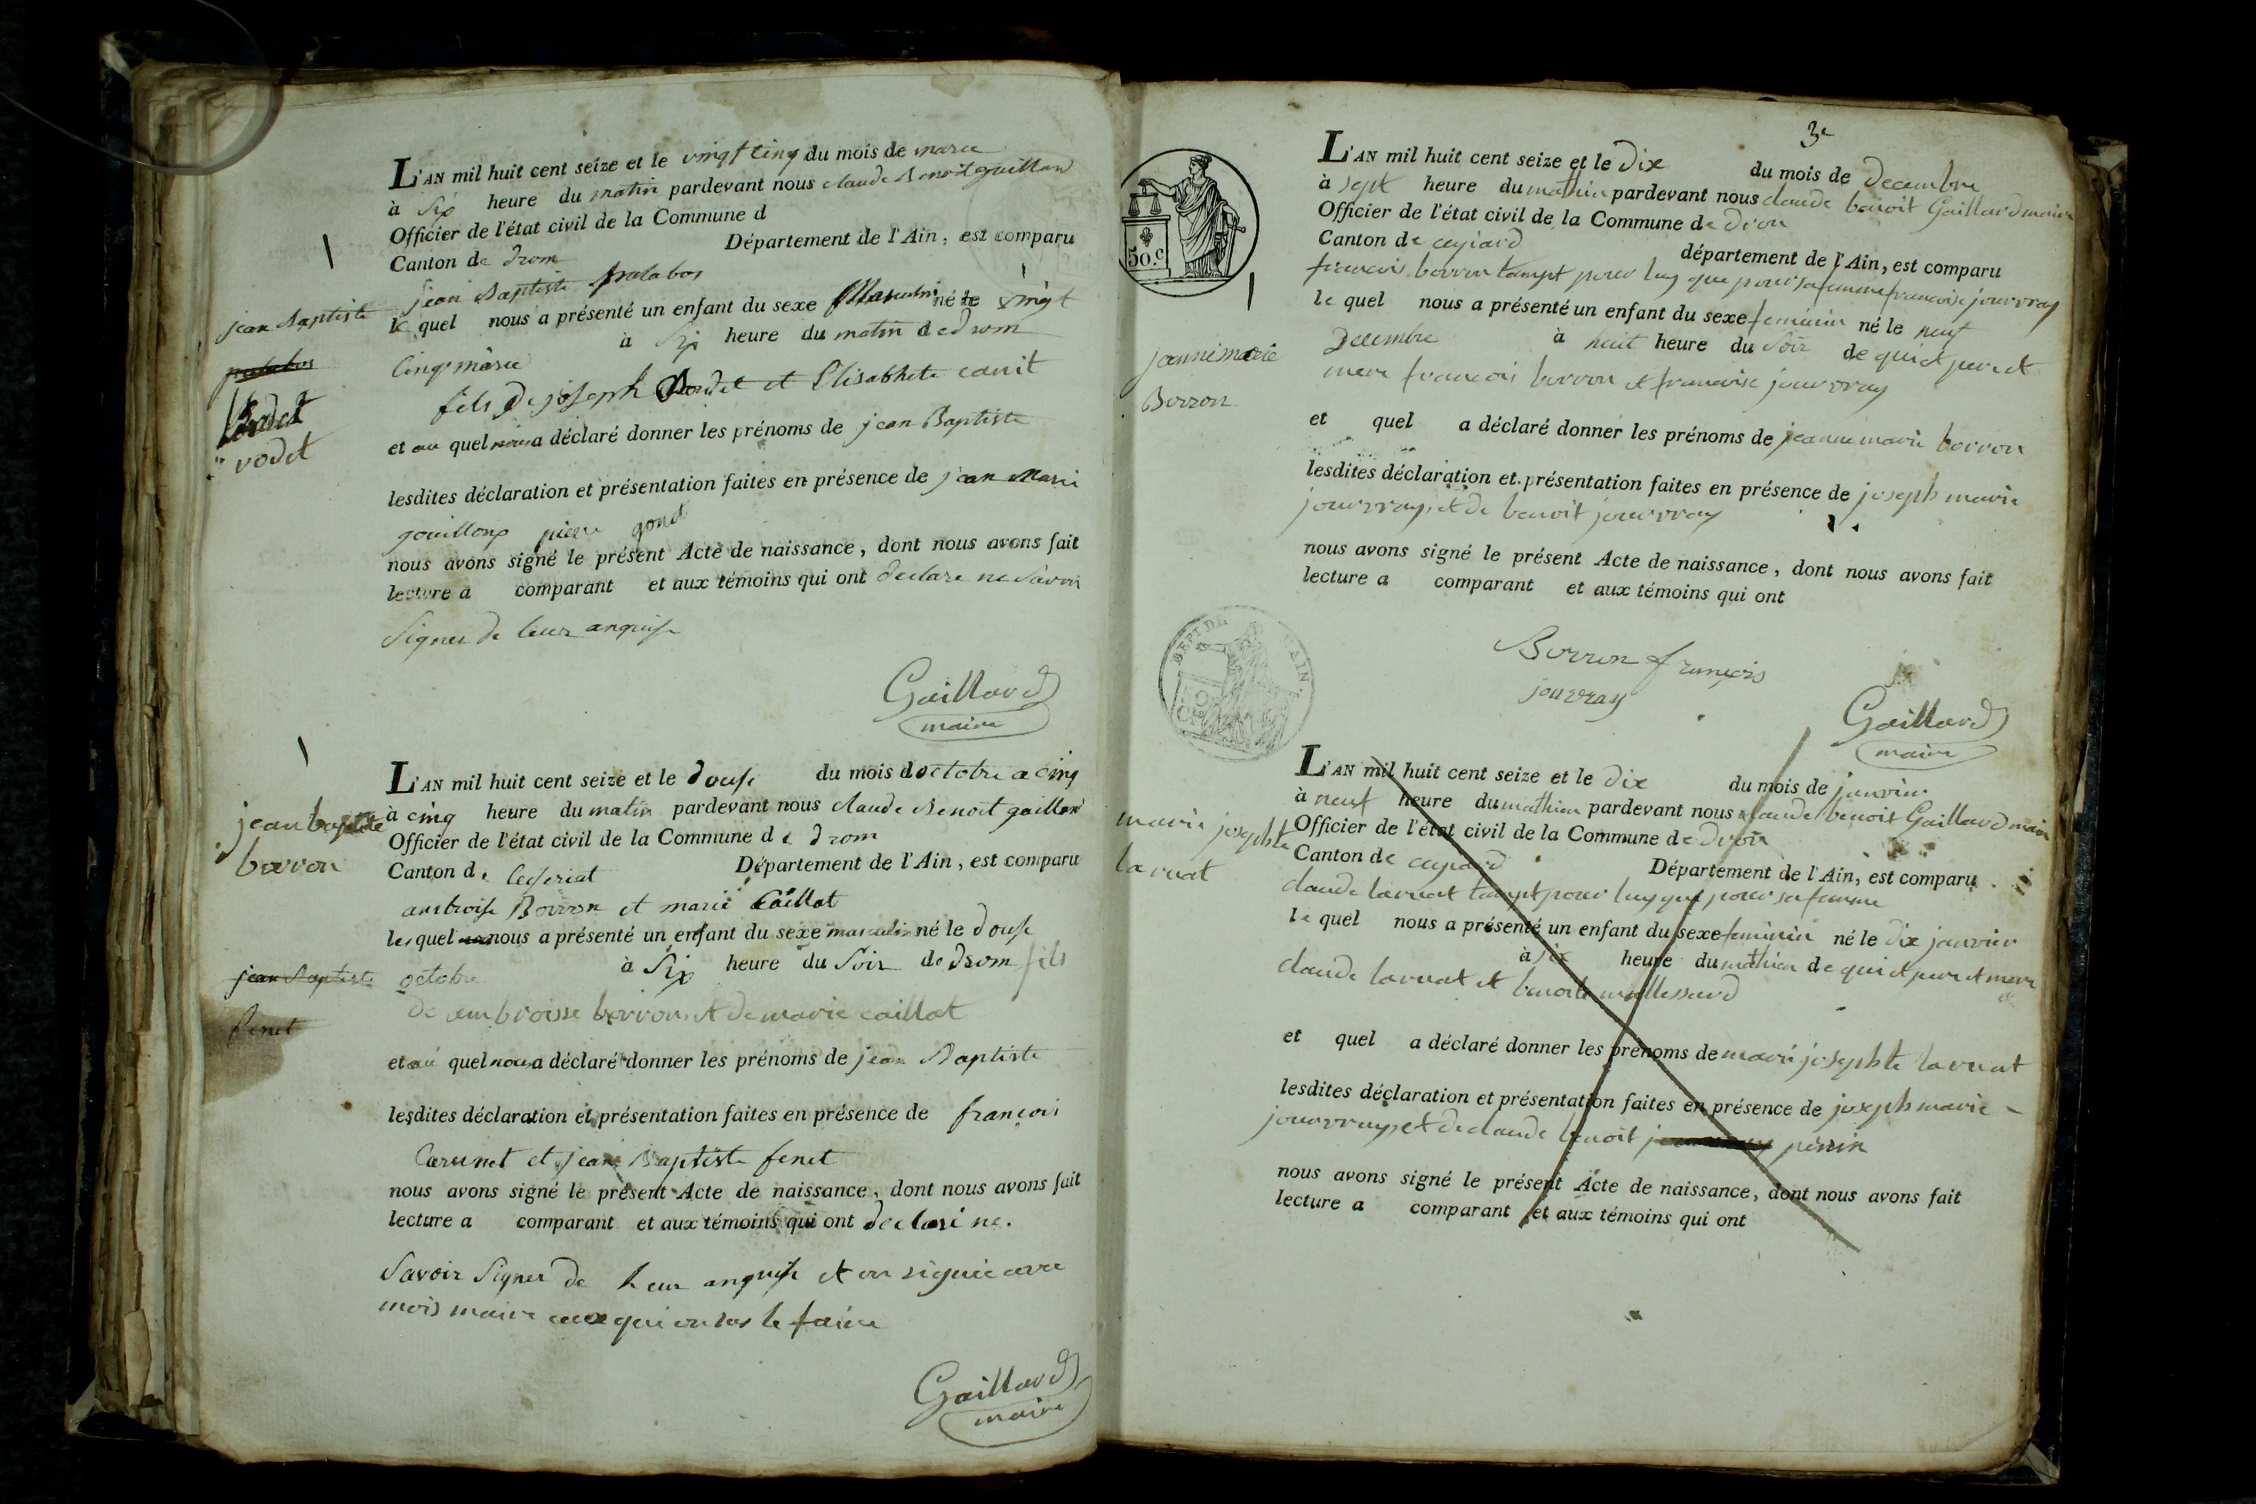 L'AN mil huit cent seize et le vingt cinq du mois de marce
à Six heure du matin pardevant nous claude Benoit gaillard
Officier de l'état civil de la Commune d
Canton de drom Département de l'Ain, est comparu
jean Baptiste
le quel nous a présenté un enfant du sexe Masculin né le vingt
Cinq marce à Six heure du matin de drom
fils de joseph et Elisabhete
et au quel nous a déclaré donner les prénoms de jean Baptiste
lesdites déclaration et présentation faites en présence de jean Marie
gouilloux pierre gonet
nous avons signé le présent Acte de naissance, dont nous avons fait
lecture a comparant et aux témoins qui ont declare ne Savoir
Signer de leur anquise
Gaillard
maire
jean Baptiste
vodet
L'AN mil huit cent seize et le douse du mois doctobre a cinq
à cinq heure du matin pardevant nous claude Benoit gaillard
Officier de l'état civil de la Commune de drom
Canton de Ceseriat Département de l'Ain, est comparu
ambroise Borron et marie Caillat
les quel nous a présenté un enfant du sexe masculin né le douse
octobre à Six heure du Soir de drom fils
de ambroisse borron et de marie caillat
et au quel nous a déclaré donner les prénoms de jean Baptiste
lesdites déclaration et présentation faites en présence de françois
Carunet et jean Baptiste fenet
nous avons signé le présent Acte de naissance, dont nous avons fait
lecture a comparant et aux témoins qui ont declaré ne.
Savoir Signer de leur anquise et on signée avec
mois maire ceux qui on sus le faire
Gaillard
maire
jean baptiste
borron
jean Baptiste
fenet
3e
50.c
L'AN mil huit cent seize et le Dix du mois de Decembre
à sept heure du mathin pardevant nous claude benoit Gaillard maire
Officier de l'état civil de la Commune de dron
Canton de département de l'Ain, est comparu
francois borron tampt pour luy que pour sa femme francoise jourvray
le quel nous a présenté un enfant du sexe feminin né le neuf
Decembre à huit heure du Soir de qui et pere et
mere francois borron et francoise jourvray
et quel a déclaré donner les prénoms de jeanne marie borron
lesdites déclaration et présentation faites en présence de joseph marie
jourvray, et de benoit jourvray
nous avons signé le présent Acte de naissance, dont nous avons fait
lecture a comparant et aux témoins qui ont
Borron françois
jourvray
Gaillard
maire
jeanne marie
Borron
L'AN mil huit cent seize et le dix du mois de janvier
à neuf heure du mathin pardevant nous claude benoit Gaillard maire
Officier de l'état civil de la Commune de dron
Canton de Département de l'Ain, est comparu
claude laruat tampt pour luy que pour sa femme
le quel nous a présenté un enfant du sexe feminin né le dix janvier
à six heure du mathin de qui et pere et mere
claude laruat et benoite
et quel a déclaré donner les prénoms de marie josephte laruat
lesdites déclaration et présentation faites en présence de joseph marie
jourvray, et de claude benoit perrin
nous avons signé le présent Acte de naissance, dont nous avons fait
lecture a comparant et aux témoins qui ont
marie josephte
laruat